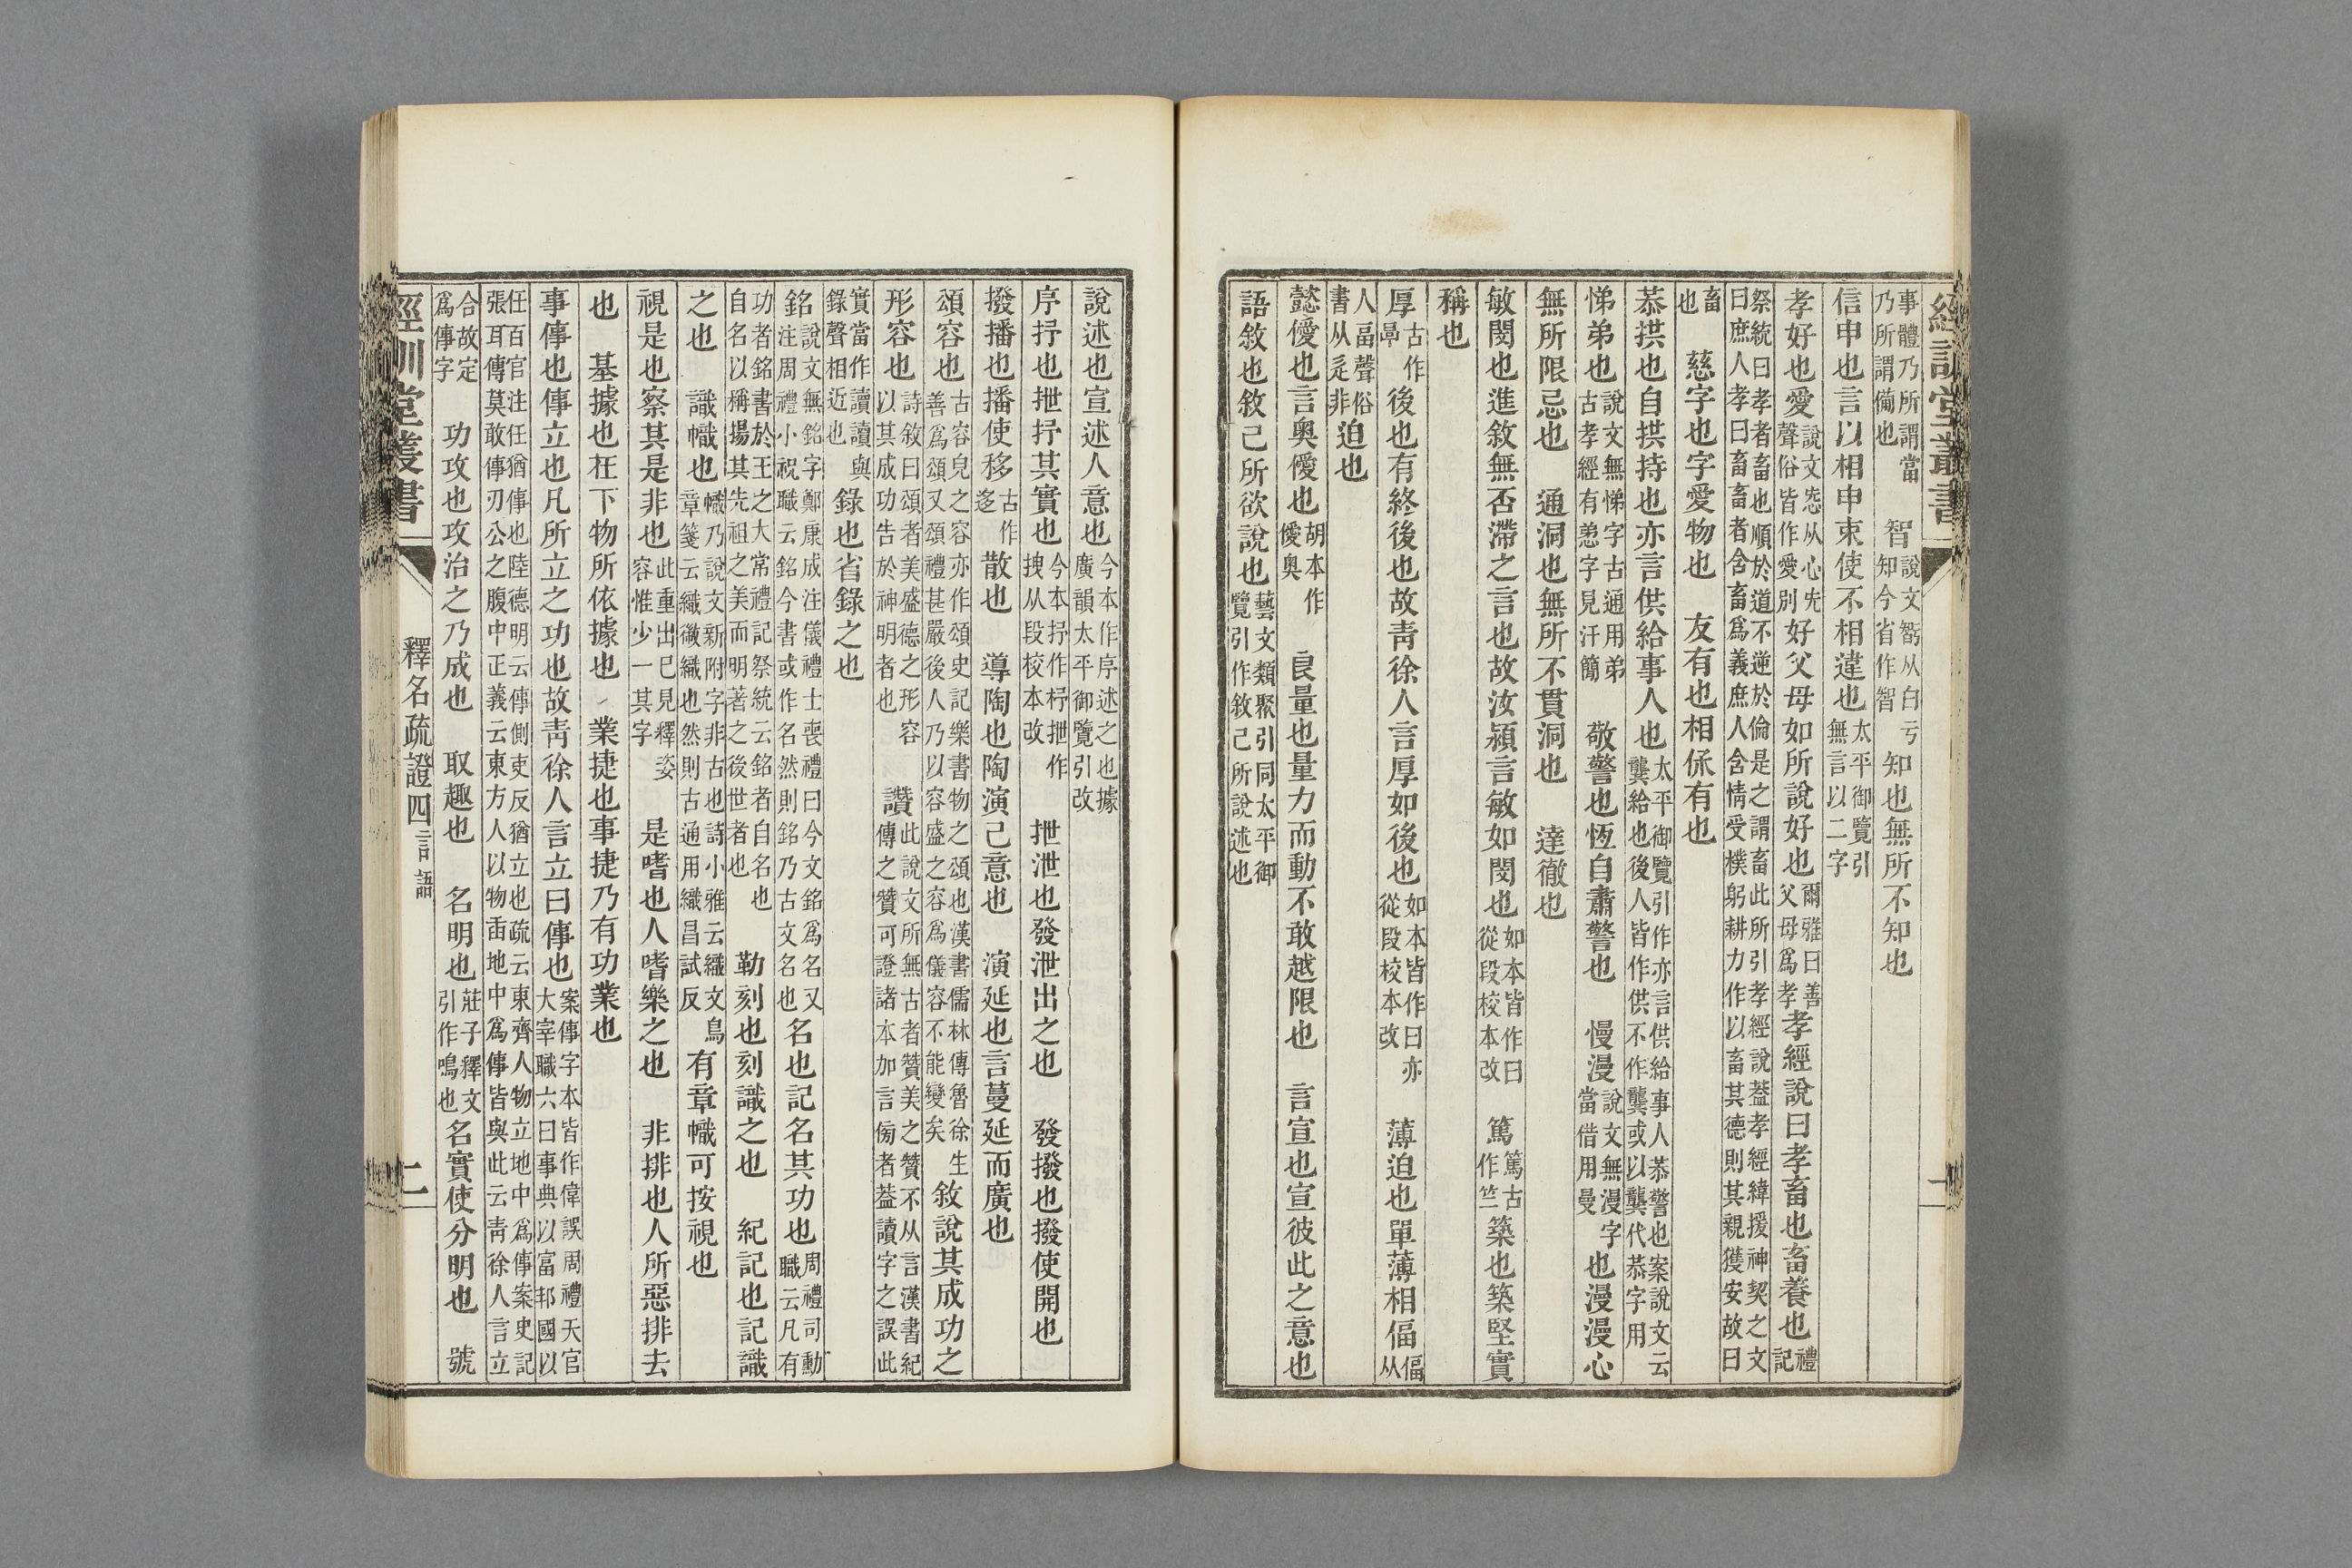 經訓堂叢書
一
事體乃所謂當乃所謂備也 智說文𥏼从白亏知今省作智知也無所不知也
信申也言以相申束使不相違也太平御覽引無言以二字
孝好也愛說文㤅从心旡聲俗皆作愛別好父母如所說好也爾雅曰善父母爲孝孝經說曰孝畜也畜養也禮記
祭統曰孝者畜也順於道不逆於倫是之謂畜此所引孝經說葢孝經緯援神契之文曰庶人孝曰畜畜者含畜爲義庶人含情受樸躬耕力作以畜其德則其親獲安故曰
畜也 慈字也字愛物也 友有也相保有也
恭拱也自拱持也亦言供給事人也太平御覽引作亦言供給事人恭警也案說文云龔給也後人皆作供不作龔或以龔代恭字用
悌弟也說文無悌字古通用弟古孝經有悬字見汗簡 敬警也恆自肅警也 慢漫說文無漫字當借用曼也漫漫心
無所限忌也 通洞也無所不貫洞也 達徹也
敏閔也進敘無否滯之言也故汝潁言敏如閔也如本皆作曰從段校本改 篤篤古作竺築也築堅實
稱也
厚古作㫗後也有終後也故靑徐人言厚如後也如本皆作曰亦從段校本改 薄迫也單薄相偪偪从
人畐聲俗書从辵非迫也
懿僾也言奧僾也胡本作僾奧 良量也量力而動不敢越限也 言宣也宣彼此之意也
語敘也敘己所欲說也藝文類聚引同太平御覽引作敘己所說述也
說述也宣述人意也今本作序述之也據廣韻太平御覽引改
序抒也抴抒其實也今本抒作杼抴作拽从段校本改 抴泄也發泄出之也 發撥也撥使開也
撥播也播使移古作迻散也 導陶也陶演己意也 演延也言蔓延而廣也
頌容也古容皃之容亦作頌史記樂書物之頌也漢書儒林傳魯徐生善爲頌又頌禮甚嚴後人乃以容盛之容爲儀容不能變矣敘說其成功之
形容也詩敘曰頌者美盛德之形容以其成功告於神明者也 讚此說文所無古者贊美之贊不从言漢書紀傳之贊可證諸本加言㫄者葢讀字之誤此
實當作讀讀與錄聲相近也錄也省錄之也
銘說文無銘字鄭康成注儀禮士喪禮曰今文銘爲名又注周禮小祝職云銘今書或作名然則銘乃古文名也名也記名其功也周禮司勳職云凡有
功者銘書於王之大常禮記祭統云銘者自名也自名以稱揚其先祖之美而明著之後世者也 勒刻也刻識之也 紀記也記識
之也 識幟也幟乃說文新附字非古也詩小雅云織文鳥章箋云織徽織也然則古通用織昌試反有章幟可按視也
視是也察其是非也此重出已見釋姿容惟少一其字 是嗜也人嗜樂之也 非排也人所惡排去
也 基據也在下物所依據也 業捷也事捷乃有功業也
事傳也傳立也凡所立之功也故靑徐人言立曰傳也案傳字本皆作偉誤周禮天官大宰職六曰事典以富邦國以
任百官注任猶傳也陸德明云傳側吏反猶立也疏云東齊人物立地中爲傳案史記張耳傳莫敢傳刃公之腹中正義云東方人以物臿地中爲傳皆與此云靑徐人言立
合故定爲傳字 功攻也攻治之乃成也 取趣也 名明也莊子釋文引作鳴也名實使分明也 號
經訓堂叢書
釋名疏證四 言語
二